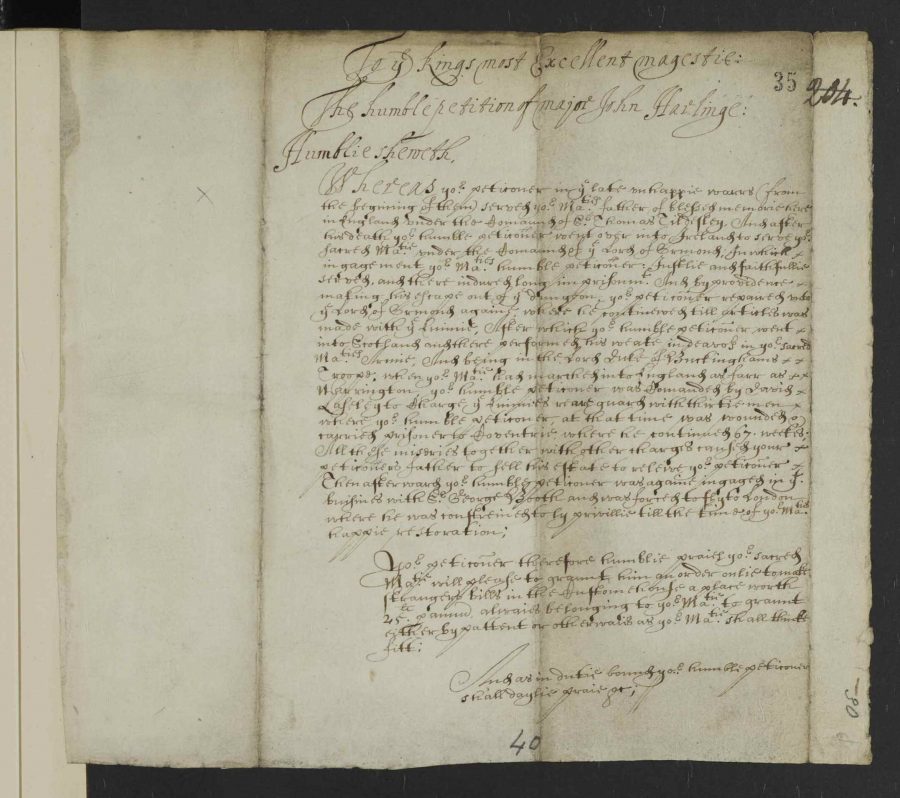 To yͤ Kings most Excellent magestie:
35 204.
The humble petition of major John Harlinge:
Humblie sheweth,
Whereas yoʳ peticoner in yͤ late unhappie warrs (from
the begining of them) served yoʳ Maᵗⁱᵉˢ father of blessed memorie here
in England under the Comaund of Sʳ Thomas Tildesley. And after
his death yoʳ humble peticoner went over into Ireland to serve yoʳ
sacred Maᵗⁱᵉ under the Comaund of yͤ Lord of Ormond, In which
ingagement yoʳ Maᵗⁱᵉˢ humble peticoner Justlie and faithfullie
served, and there indured long imprisonmᵗ. And by providence
making his escape out of yͤ dungeon, yoʳ peticoner repaired unto
yͤ Lord of Ormond againe, where he continewed till articles was
made with yͤ Enimie, After which yoʳ humble peticoner went
into Scotland and there performed his weake indeavoʳ in yoʳ sacred
Maᵗⁱᵉˢ Armie, And being in the Lord Duke of Buckinghams
Troope, when yoʳ Maᵗⁱᵉ had marched into England as farr as
Warrington yoʳ humble peticoner was Comanded by David
Lasely to Charge yͤ Enimies reare guard with thirtie men
where yoʳ humble peticoner at that time was wounded &
carried prisoner to Coventrie where he continued 67. weekes
All these miseries together with other charges caused your
peticoners father to sell his estate to releive yoʳ peticoner
Then afterward yoʳ humble peticoner was againe ingaged in yͤ
buisines with Sʳ George Booth and was forced to fly to London
where he was constreined to ly privilie till the time of yoʳ Maᵗⁱᵉˢ
happie restoration;
Yoʳ peticoner therefore humblie praieth yoʳ sacred
Maᵗⁱᵉ will please to graunt him an order onlie to make
strangers bills in the Custome house a place worth
45ˡⁱ p annu alwaies belonging to yoʳ Maᵗⁱᵉ to graunt
either by pattent or otherwais as yoʳ Maᵗⁱᵉ shall thinke
fitt:
And as in dutie bound yoʳ humble peticoner
shall daylie praie &c;
40